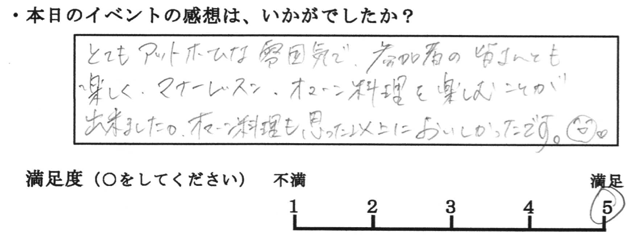 ・本日のイベントの感想は、いかがでしたか？
とてもアットホームな雰囲気で、参加者の皆さんとも
楽しく、マナーレッスン、オマーン料理を楽しむことが
出来ましたの。オマーン料理も思った以上においしかったです。
満足度（○をしてください） 不満 満足
1 2 3 4 5